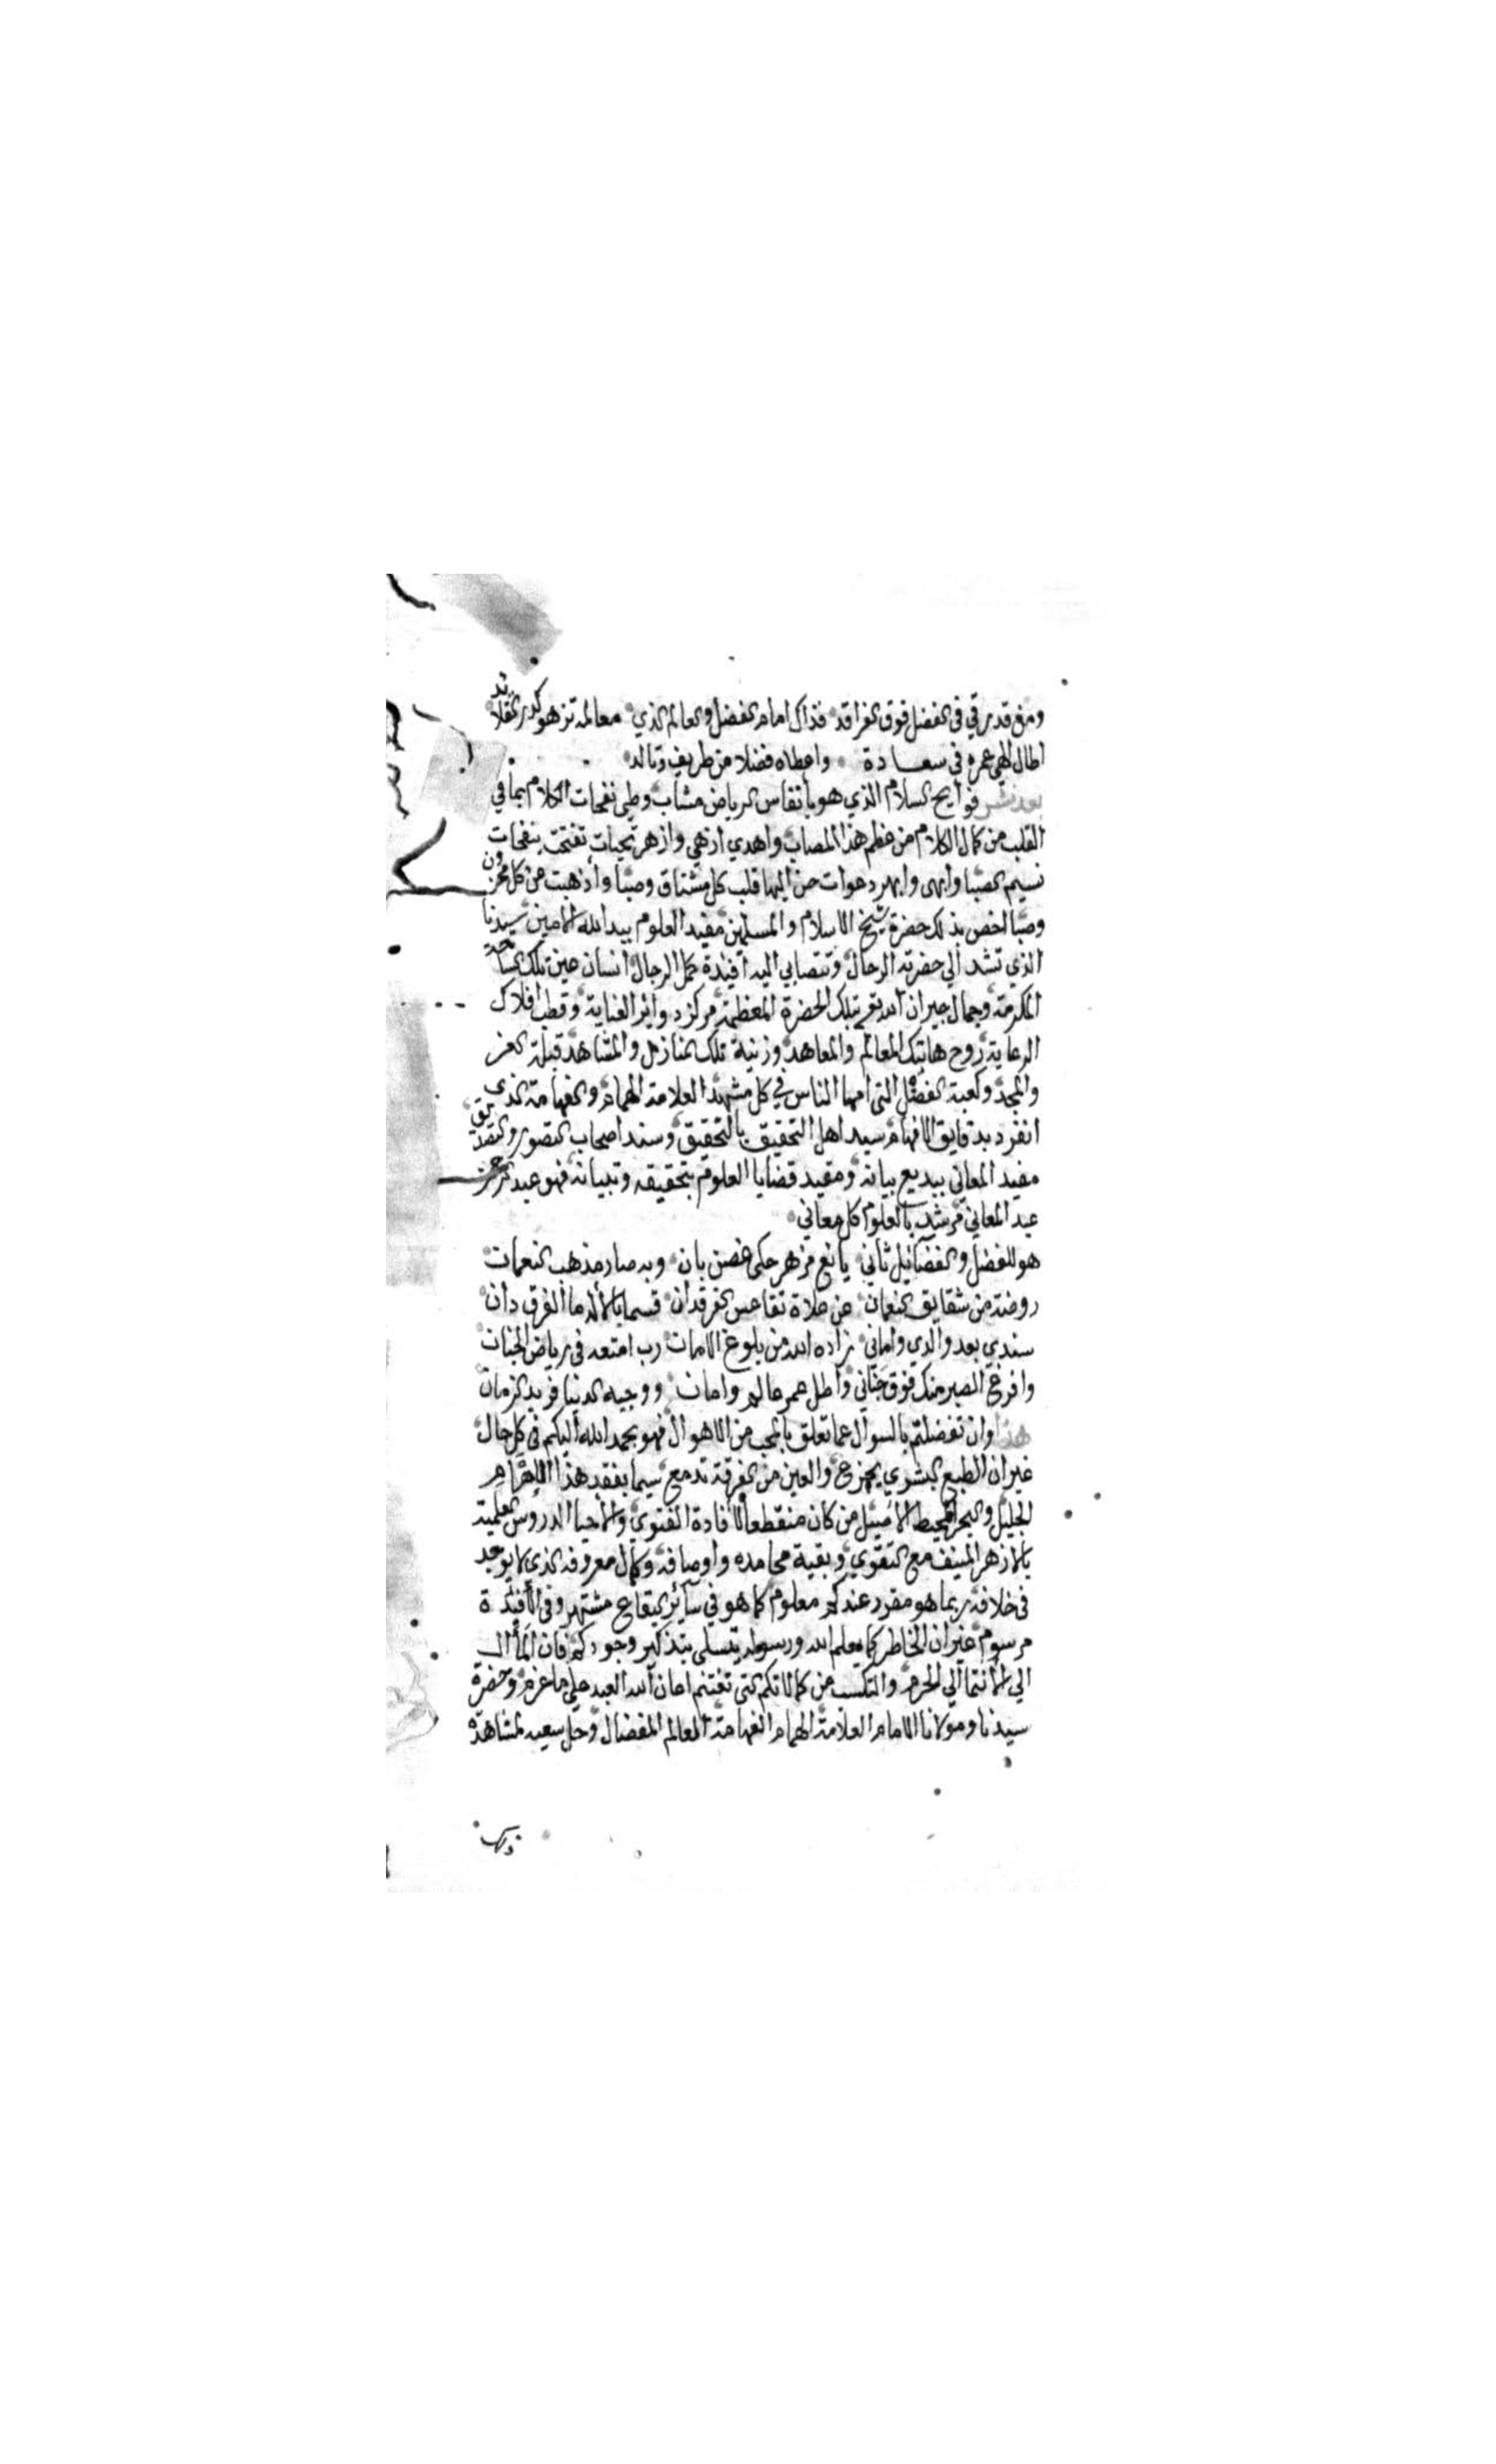 ومن قد رقي في الفضل فوق الفراقد فذاك امام الفضل والعالم الذي معالمه تزهو كدر القلائد
اطال الهي عمره في سعادة واعطاه فضلا من طريف وتالد
بعد نشر فوايح السلام الذي هو بأنفاس الرياض مشاب وطي نفحات الكلام بما في
القلب من كمال الكلام من عظم هذا المصاب واهدي ازهي وازهر تحيات تفتحت بنفحات
نسيم الصبا وابهى وابهر دعوات حن اليها قلب كل مشتاق وصبا وأذهبت عن كل محزون
وصبا اخص بذلك حضرة شيخ الاسلام والمسلمين مفيد العلوم ببيد الله الامين سيدنا
الذي تشد الي حضرته الرحال وتتصابي اليه افيدة كمل الرجال انسان عين تلك المساجد
المكرمة وجمال جيران الله بقي تلك الحضرة المعظمة مركز دواير العناية وقطب افلاك
الرعاية روح هاتيك المعالم والمعاهد وزينة تلك المنازل والمشاهد قبلة العز
والمجد وكعبة الفضل التي امها الناس في كل مشهد العلامة الهمام والفهامة الذي
انفرد بدقايق الافهام سيد اهل التحقيق بالتحقيق وسند اصحاب التصور والتصديق
مفيد المعاني ببديع بيانه ومقيد قضايا العلوم بتحقيقه وتبيانه فهو عبد الرحمن
عبد المعاني مرشد بالعلوم كل معاني
هو للفضل والفضائيل ثاني يانع مزهر حكى غصن بان وبه صار مذهب النعمان
روضة من شقايق النعمان عن علاه تقاعس الفرقدان قسما بالأله ما الفرق دان
سندي بعد والدي واماني زاده الله من بلوغ الامان رب امتعه في رياض الجنان
وافرغ الصبر منك فوق جناني واطل عمر عالم وامان ووجيه الدنيا فريد الزمان
هذا وان تفضلتم بالسوال عما تعلق بالمحب من الاهوال فهو بحمد الله اليكم في كل حال
غير ان الطبع البشري يجزع والعين من الفرقة تدمع سيما بفقد هذا الامام
الجليل والبحر المحيط الاصيل من كان منقطعا لافادة الفتوي والاحيا الدروس العلمية
بالازهر المنيف مع التقوي وبقية محامده واوصافه وكمال معروفه الذي لا يوجد
في خلافه ربما هو مقرر عندكم معلوم كما هو في سآئر البقاع مشتهر وفي الأفئدة
مرسوم غير ان الخاطر كما يعلم الله ورسوله يتسلى بتذكير وجودكم فان المأال
الي الأنتما الي الحرم والتكسب من كمالاتكم التي تغتنم اعان الله العبد على ما عزم وحضرة
سيدنا ومولانا الامام العلامة الهمام الفهامة العالم المفضال وحل سعيه لمشاهدة
ذلك